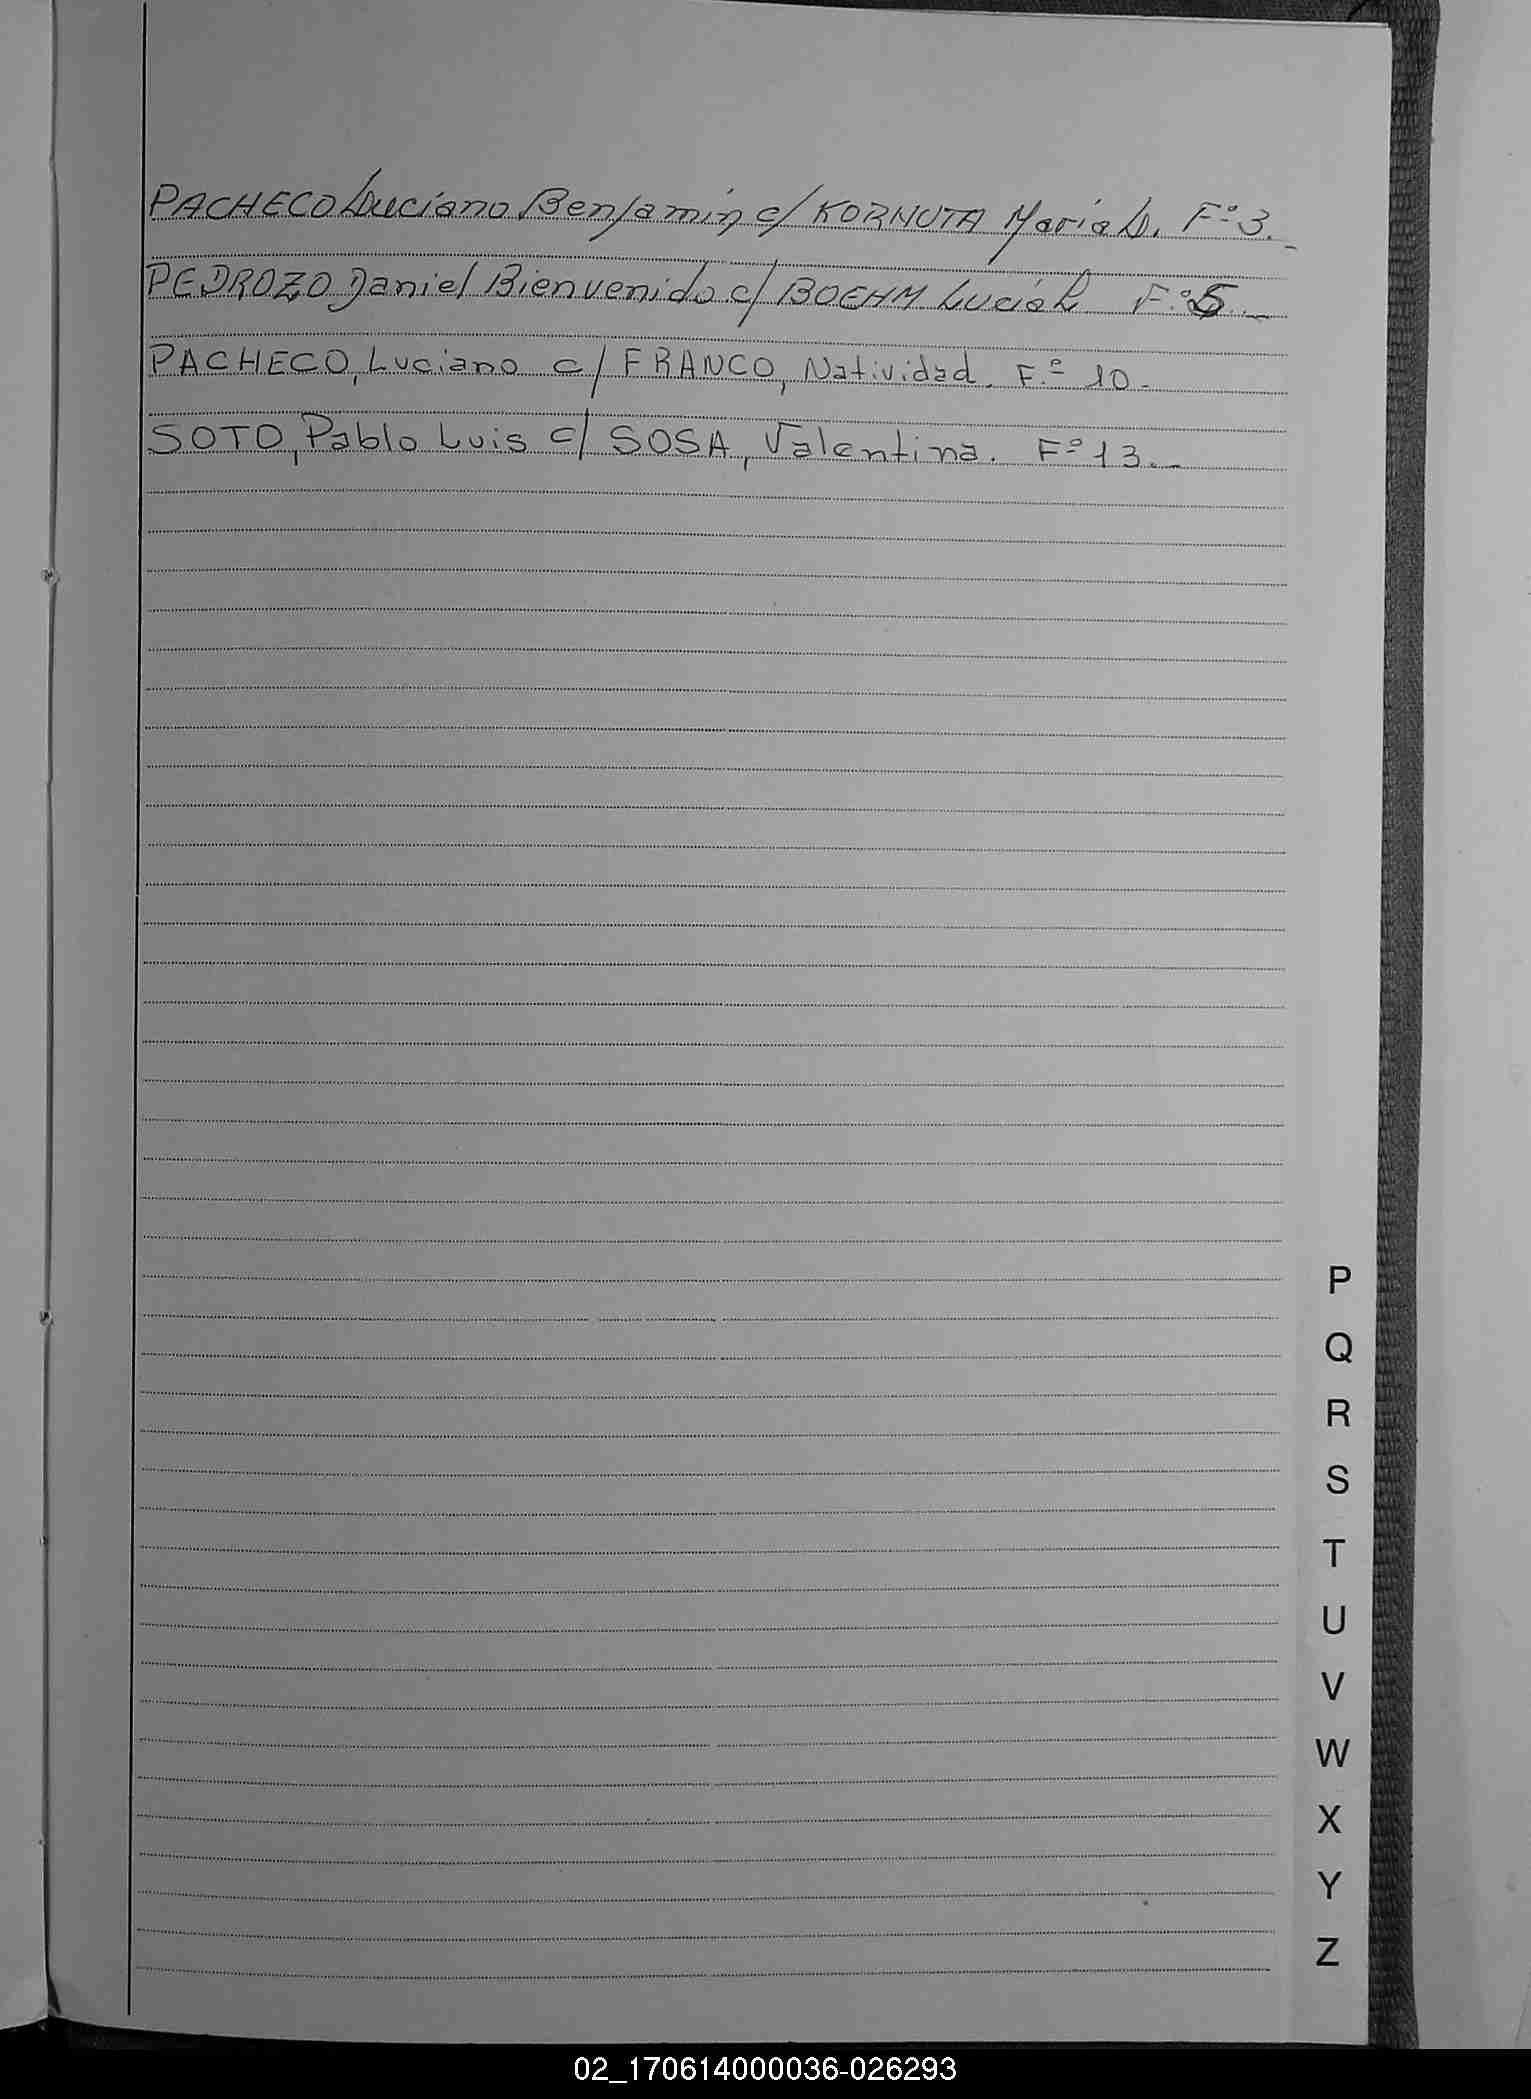 PACHECO Luciano Benjamin c/ KORNUTA Maria D. Fº 3.-
PEDROZO Daniel Bienvenido c/ BOEHM Lucia R Fº 5.-
PACHECO, Luciano c/ FRANCO, Natividad. F.º 10-
SOTO, Pablo Luis c/ SOSA, Valentina. Fº 13.-
P
Q
R
S
T
U
V
W
X
Y
Z
02_170614000036-026293